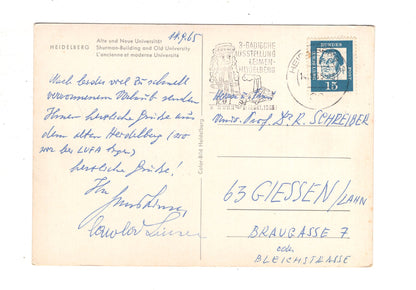 Alte und Neue Universität
HEIDELBERG Shurman-Building and Old University
L'ancienne et moderne Université
11.9.65
Nach beides viel zu schnell
verronnenem Urlaub senden
Ihnen herzliche Grüße aus
dem alten Heidelberg (wo
wir bei LUFA tagen)
herzliche Grüße!
Ihr
Color-Bild Heidelberg
3. BADISCHE
AUSSTELLUNG
HEIDELBERG
DEUTSCHE BUNDESPOST
15
Herrn u. Frau
Univ. Prof. Dr. R. SCHREIBER
63 GIESSEN/LAHN
BRAUGASSE 7
ode.
BLEICHSTRASSE